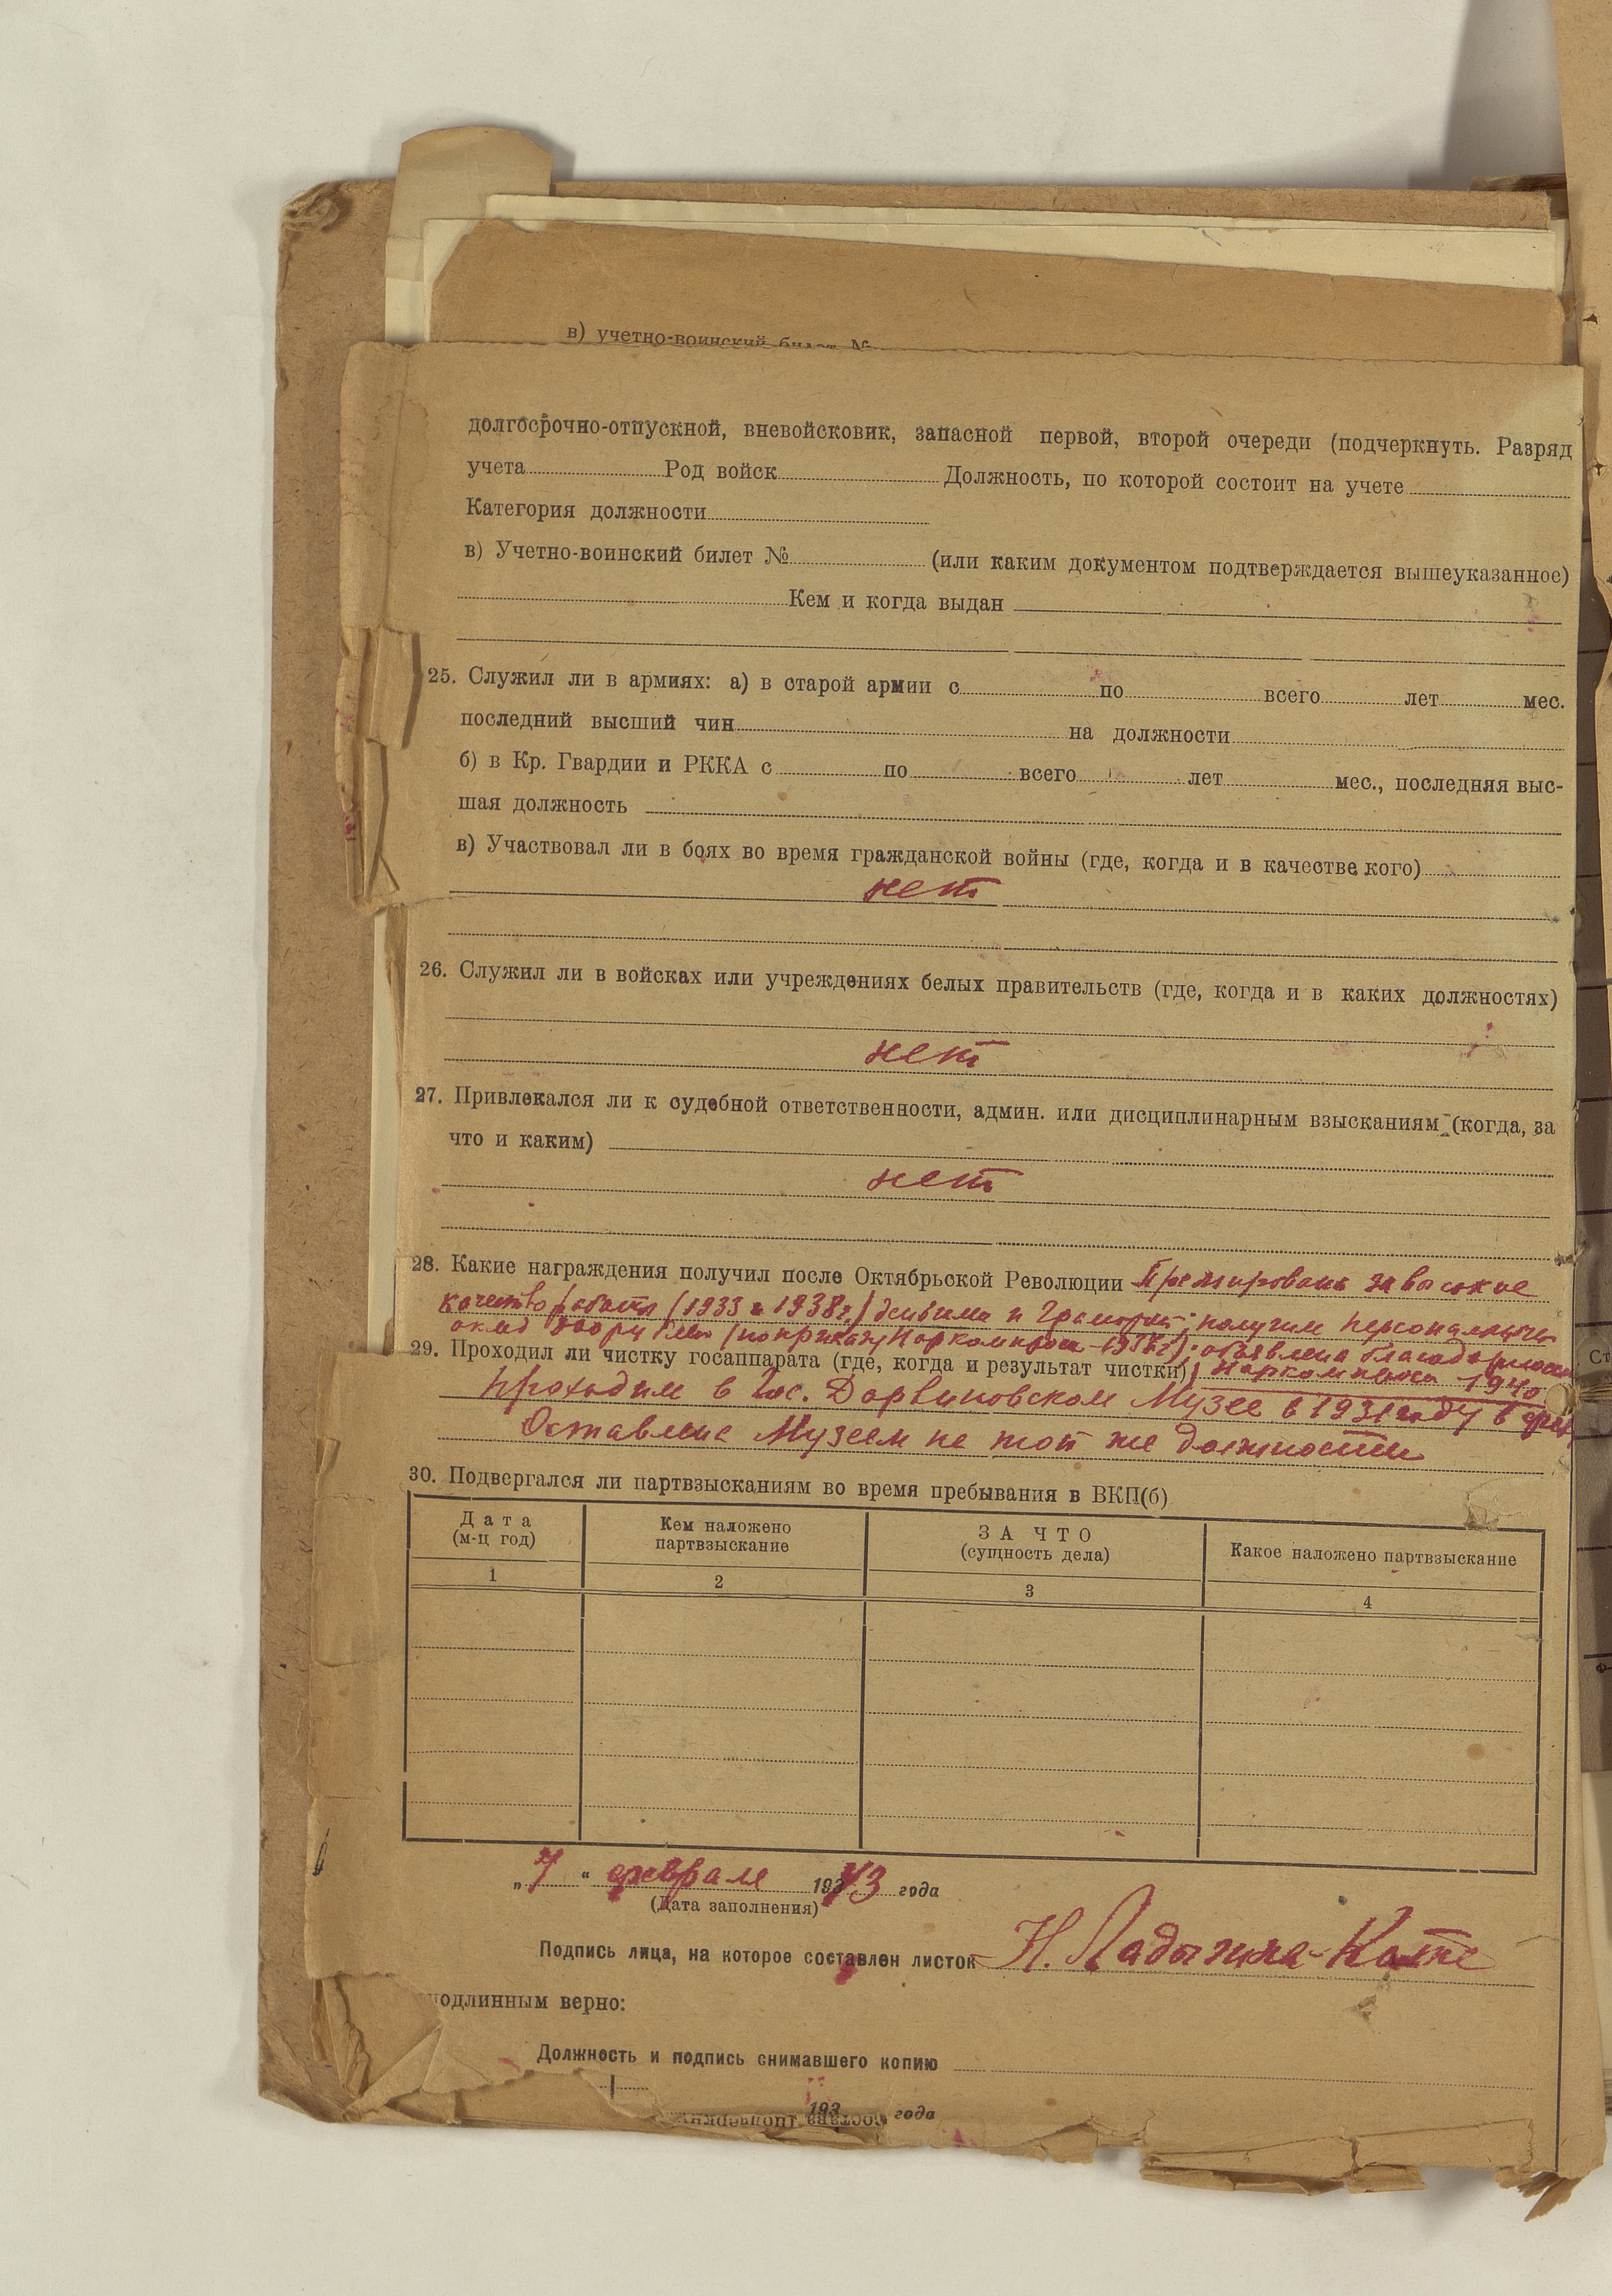 в) учетно-воинский билет №
долгосрочно-отпускной, вневойсковик, запасной первой, второй очереди (подчеркнуть. Разряд
учета Род войск Должность, по которой состоит на учете
Категория должности
в) Учетно-воинский билет № (или каким документом подтверждается вышеуказанное)
Кем и когда выдан
25. Служил ли в армиях: а) в старой армии с по всего лет мес.
последний высший чин на должности
б) в Кр. Гвардии и РККА с по всего лет мес., последняя выс-
шая должность
в) Участвовал ли в боях во время гражданской войны (где, когда и в качестве кого)
нет
26. Служил ли в войсках или учреждениях белых правительств (где, когда и в каких должностях)
нет
27. Привлекался ли к судебной ответственности, админ. или дисциплинарным взысканиям (когда, за
что и каким)
нет
28. Какие награждения получил после Октябрьской Революции Премирована за высокие
качество работы (1933 и 1938г.) деньгами и грамотой; получил персональный
оклад (по приказу Наркомпроса 1938г.); объявлена благодарность
29. Проходил ли чистку госаппарата (где, когда и результат чистки) Наркомпроса 1940
Проходил в Гос. Дарвиновском Музее в 1931 году в
Оставлена Музеем на той же должности
30. Подвергался ли партвзысканиям во время пребывания в ВКП(б)
Дата (м-ц год) Кем наложено партвзыскание ЗА ЧТО (сущность дела) Какое наложено партвзыскание
1 2 3 4
„7“ февраля 1943 года
(Дата заполнения)
Подпись лица, на которое составлен листок Н. Ладыгина-Котс
подлинным верно:
Должность и подпись снимавшего копию
193 года